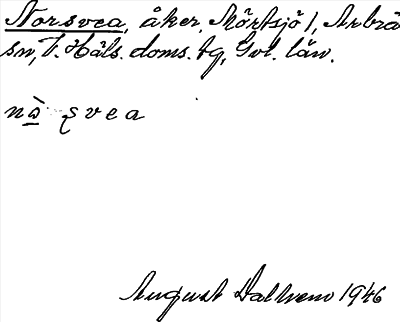 Norsvea, åker, Mörtsjö 1, Arbrå
sn, V. Häls. doms. tg, Gvl. län.
nò svea
August Dalhem 1946